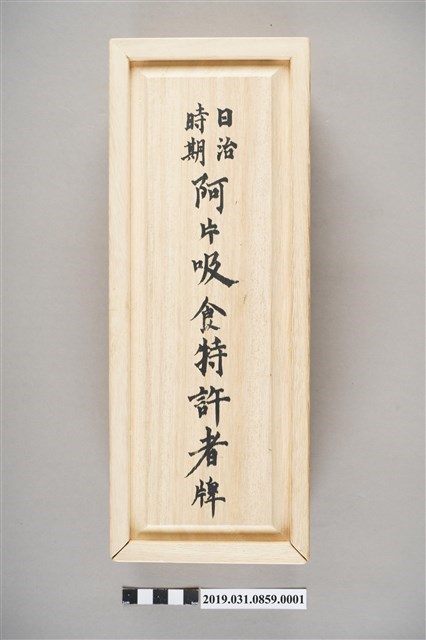 日治
時期
阿片吸食特許者牌
2019.031.0859.0001